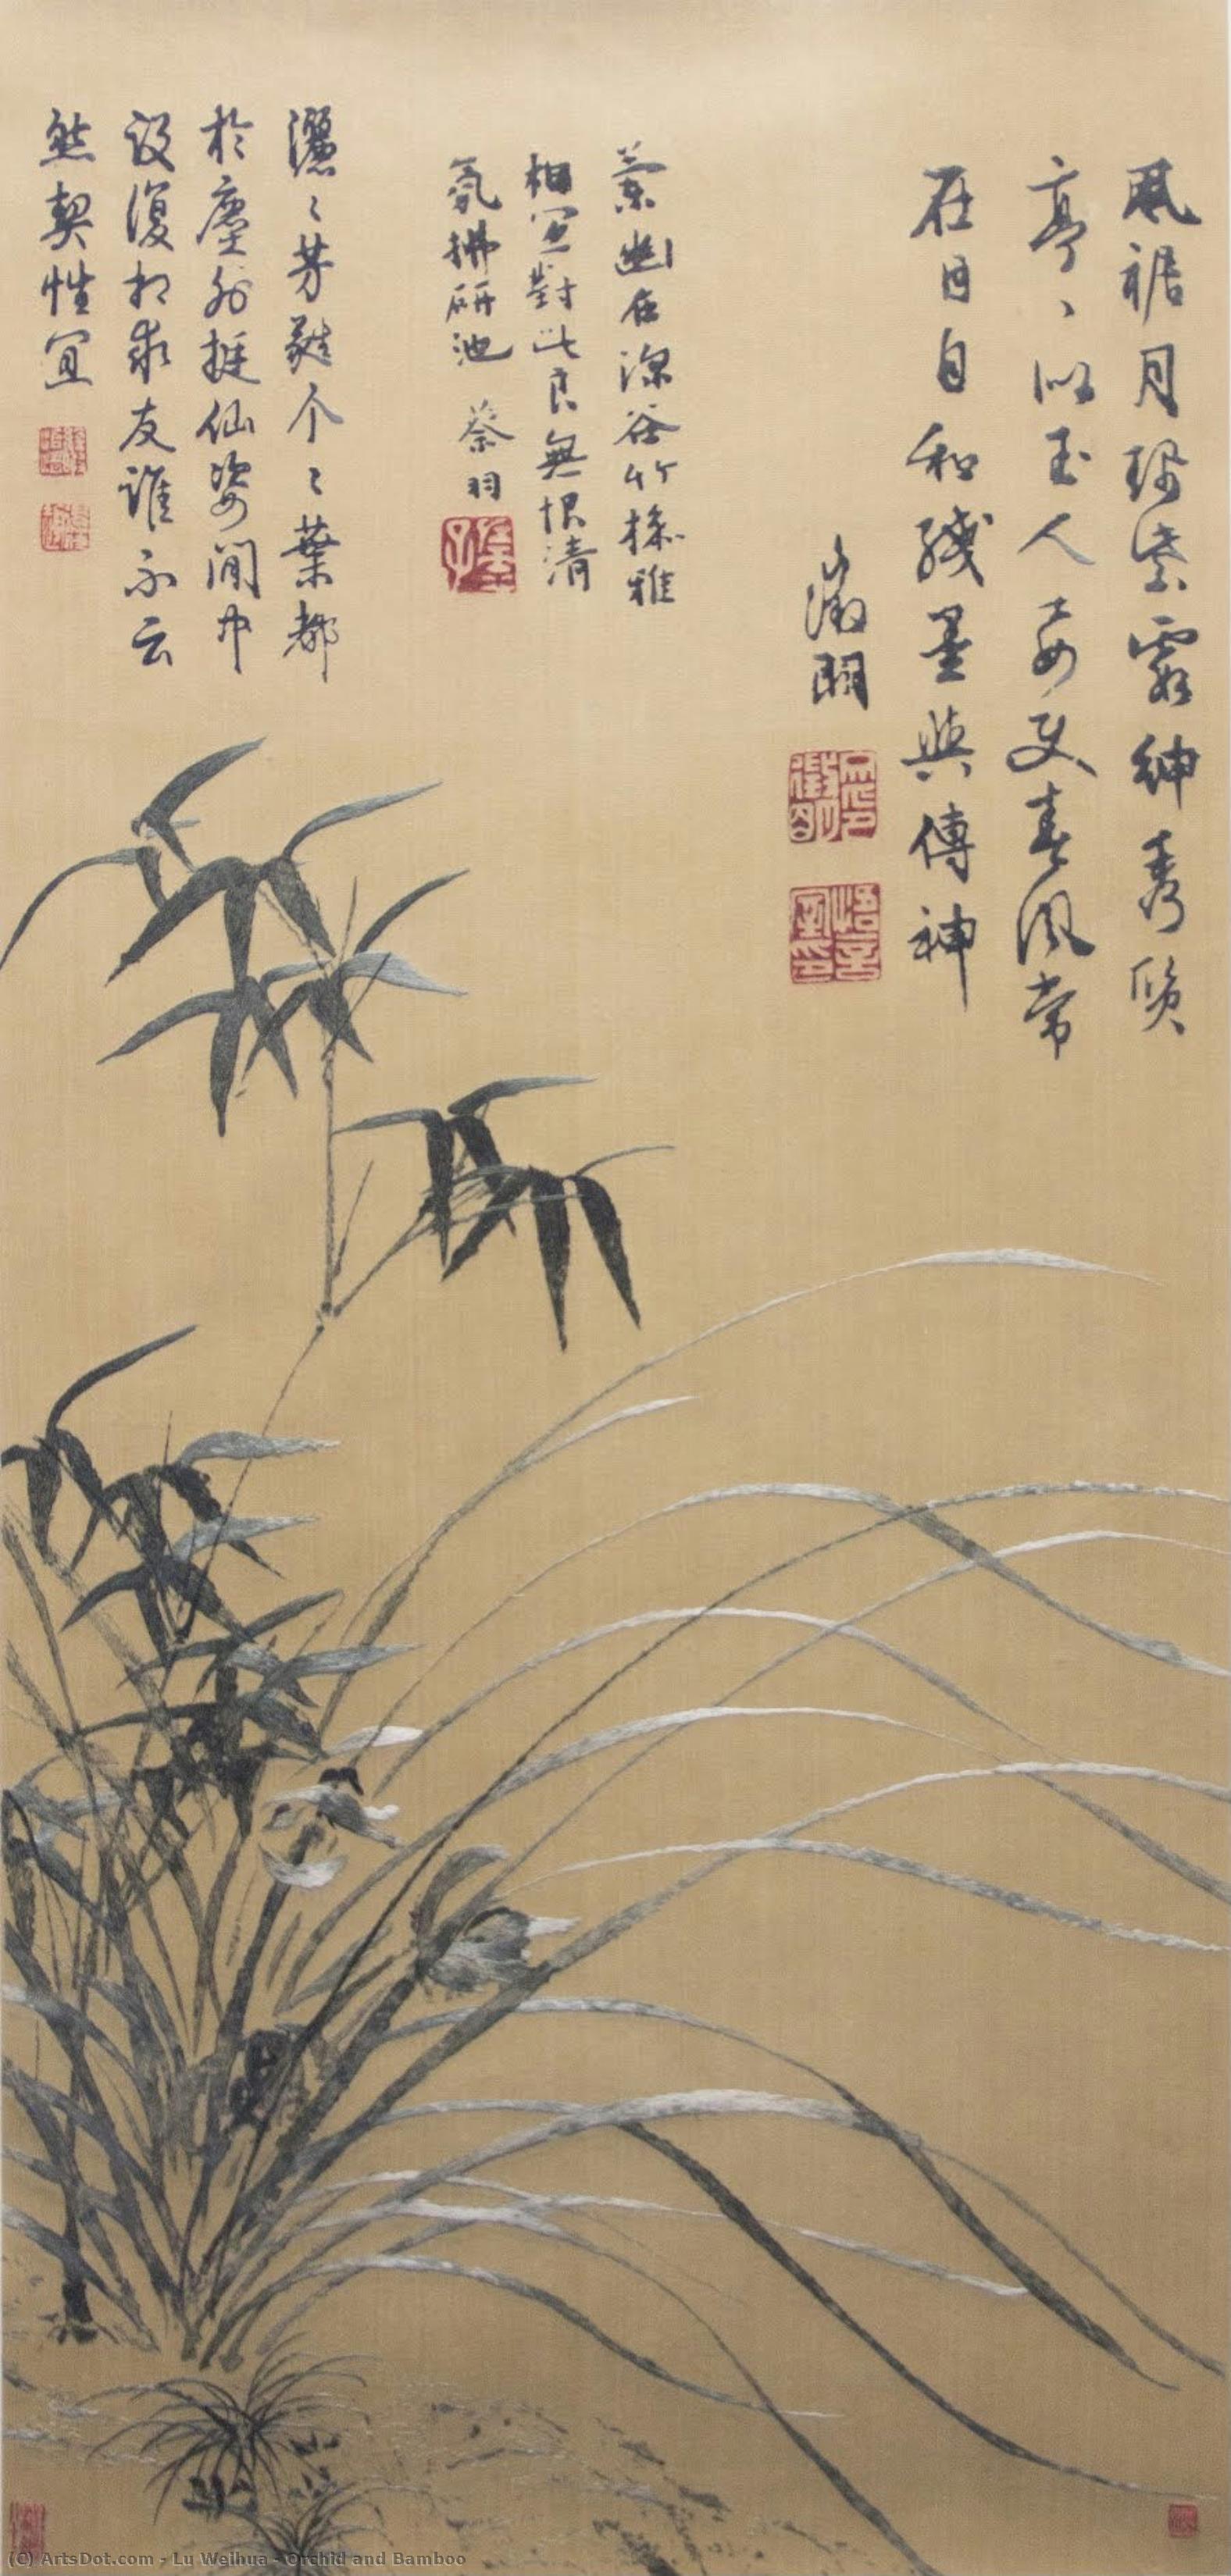 風裾月珮紫霞紳秀質
亭亭似玉人要使春風常
在目自和殘墨與傳神
徵明
蘭幽在深谷竹操雅
相宜對此良無恨清
氛拂研池 蔡羽
灑灑芳蕤个个葉都
於塵外挺仙姿閒中
設復相求友誰不云
然契性宜
(C) ArtsDot.com - Lu Weihua - Orchid and Bamboo